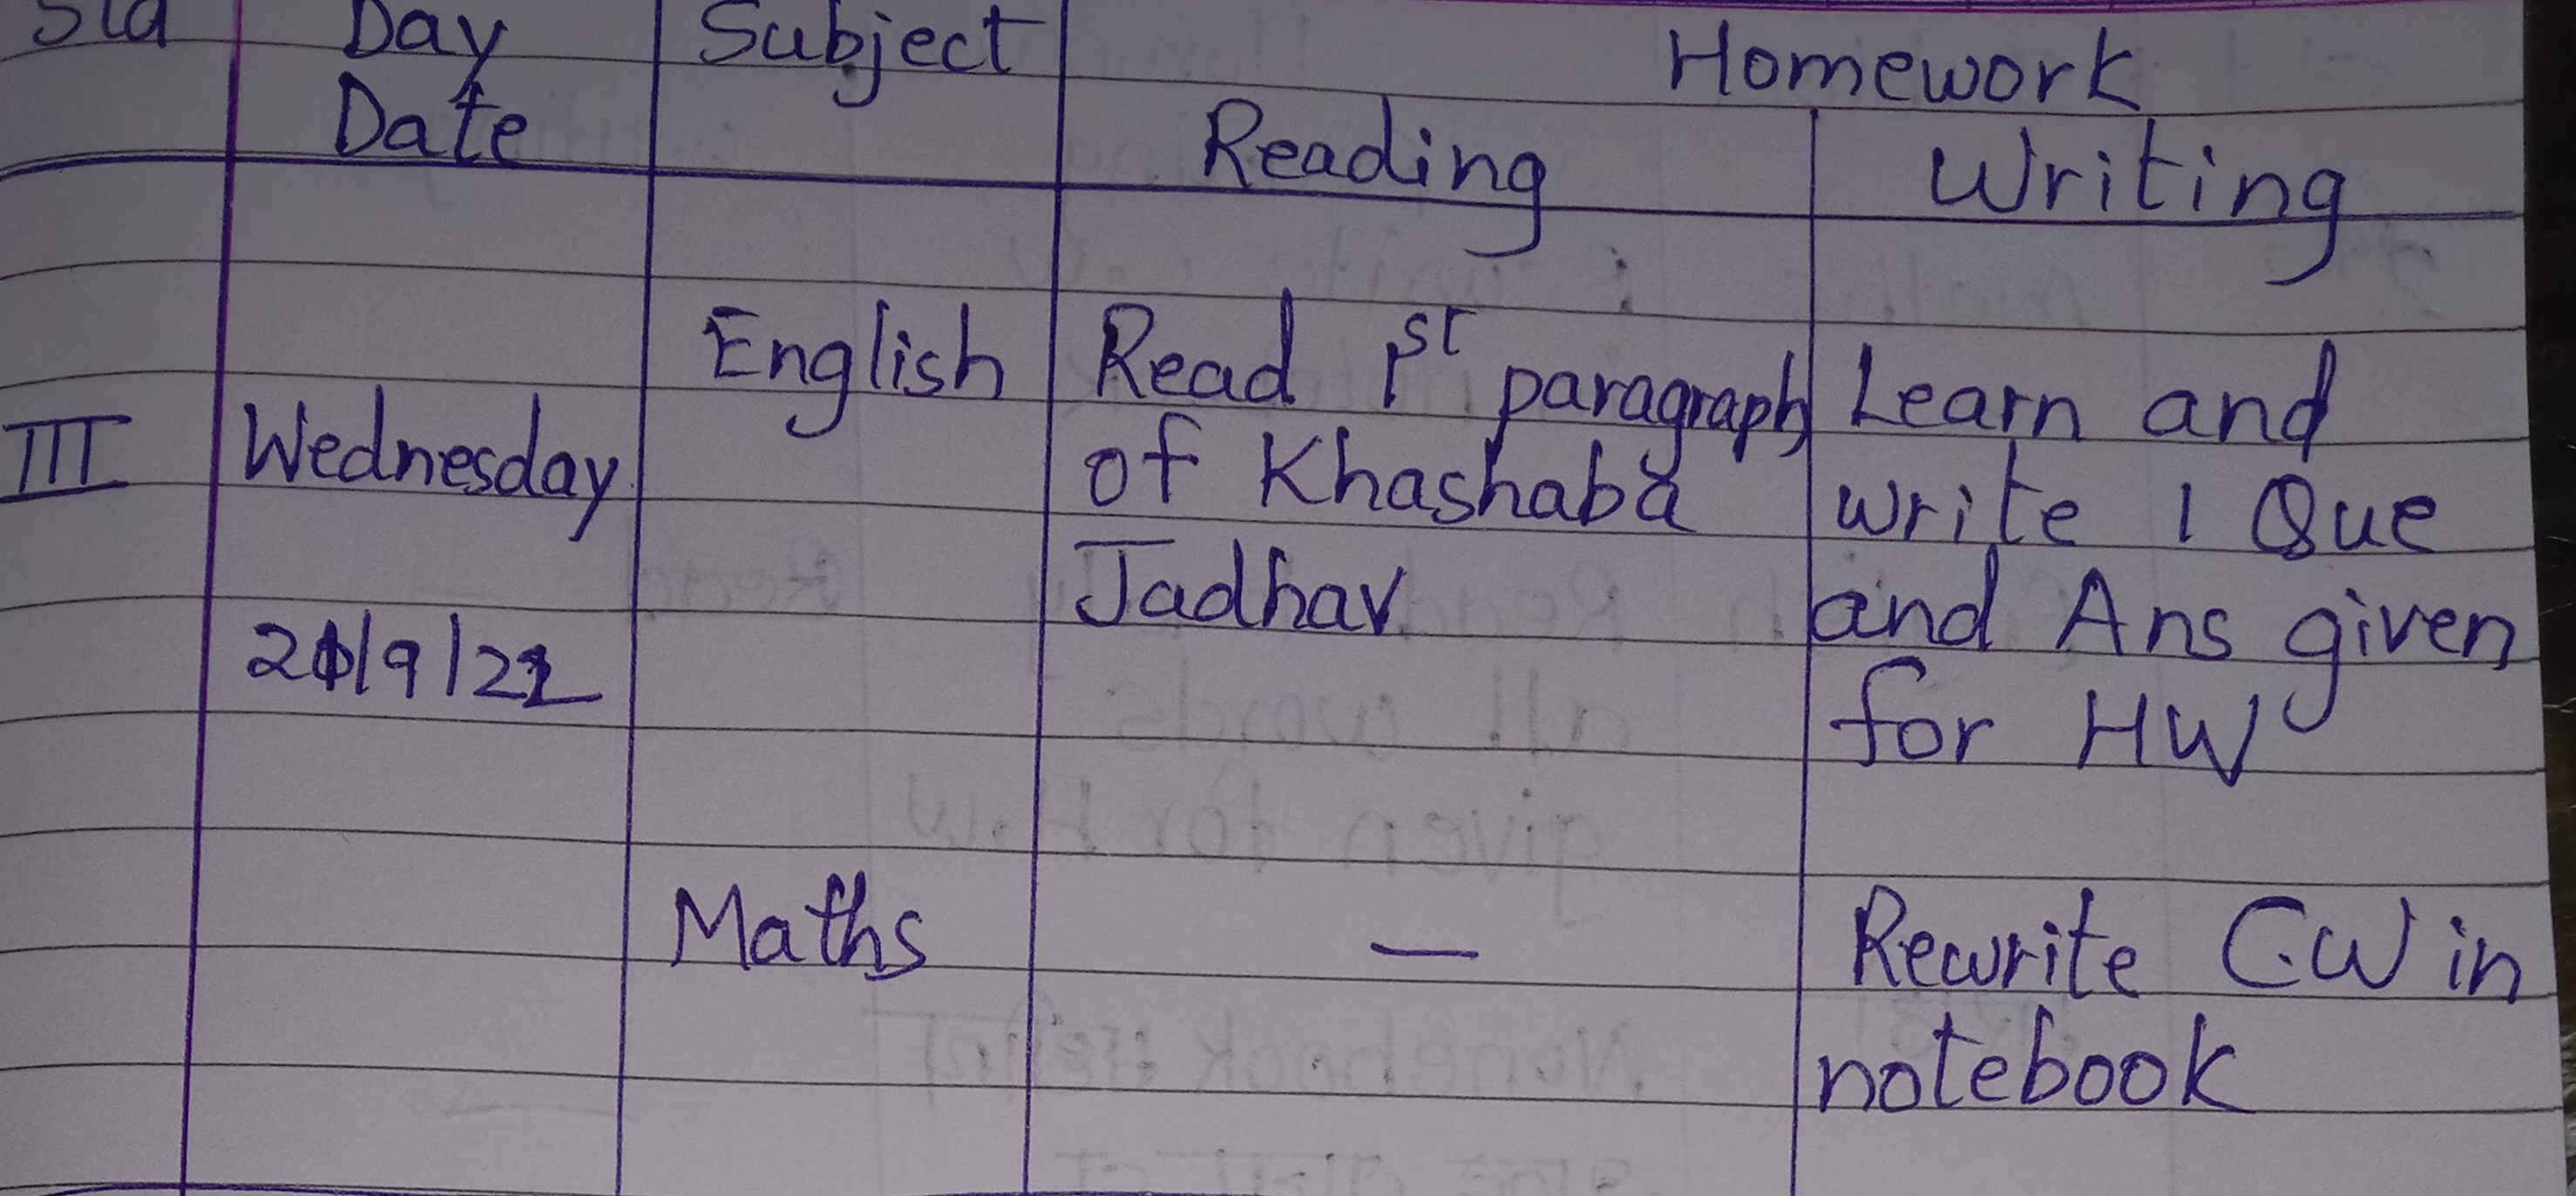 Std Day Subject Homework
Date Reading Writing
English Read 1st paragraph Learn and
III Wednesday of Khashaba write 1 Que
Jadhav and Ans given
21/9/22 for HW
Maths — Rewrite C.W in
notebook